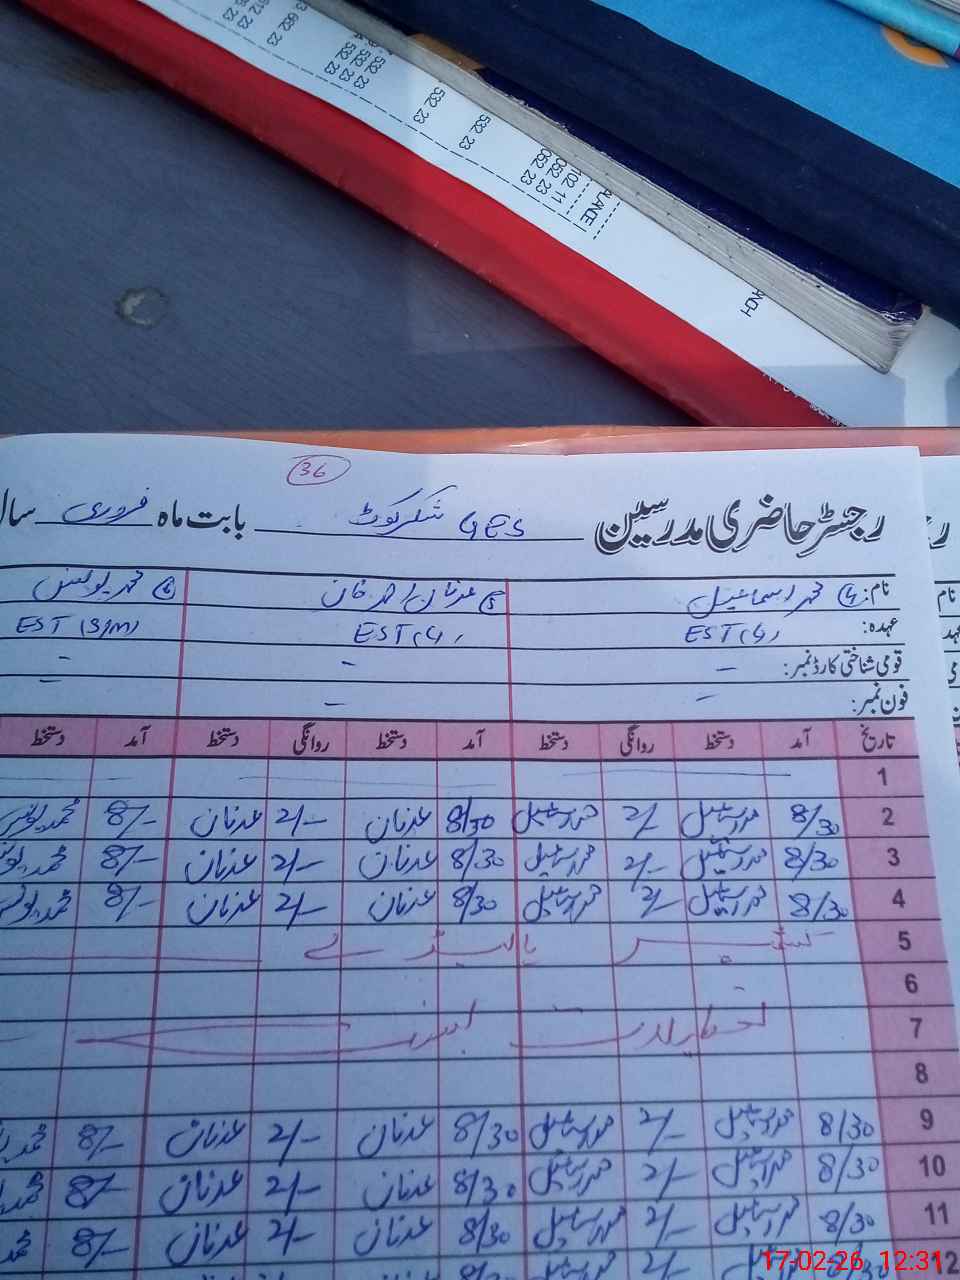 532 23
532 23
532 23
532 23
532 23
102 11
062 23
062 23
BALANCE
36
رجسٹر حاضری مدرسین GES شکر کوٹ بابت ماہ فروری سال
نام: (4) محمد اسماعیل (5) عدنان احمد خان (6) محمد یونس
عہدہ: EST(G) EST(G) EST(S/M)
قومی شناختی کارڈ نمبر: - - -
فون نمبر: - - -
تاریخ آمد دستخط روانگی دستخط آمد دستخط روانگی دستخط آمد دستخط
1
2 8/30 محمد اسماعیل 2/- محمد اسماعیل 8/30 عدنان 2/- عدنان 8/- محمد یونس
3 8/30 محمد اسماعیل 2/- محمد اسماعیل 8/30 عدنان 2/- عدنان 8/- محمد یونس
4 8/30 محمد اسماعیل 2/- محمد اسماعیل 8/30 عدنان 2/- عدنان 8/- محمد یونس
5 کشمیر ڈے
6
7
8
9 8/30 محمد اسماعیل 2/- محمد اسماعیل 8/30 عدنان 2/- عدنان 8/-
10 8/30 محمد اسماعیل 2/- محمد اسماعیل 8/30 عدنان 2/- عدنان 8/-
11 8/30 محمد اسماعیل 2/- محمد اسماعیل 8/30 عدنان 2/- عدنان 8/-
12
17-02-26 12:31